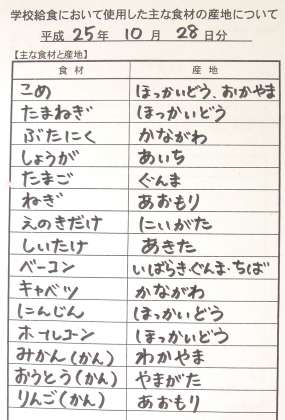 学校給食において使用した主な食材の産地について
平成 25年 10月 28日分
【主な食材と産地】
食材 産地
こめ ほっかいどう、おかやま
たまねぎ ほっかいどう
ぶたにく かながわ
しょうが あいち
たまご ぐんま
ねぎ あおもり
えのきだけ にいがた
しいたけ あきた
ベーコン いばらき・ぐんま・ちば
キャベツ かながわ
にんじん ほっかいどう
ホールコーン ほっかいどう
みかん(かん) わかやま
おうとう(かん) やまがた
りんご(かん) あおもり